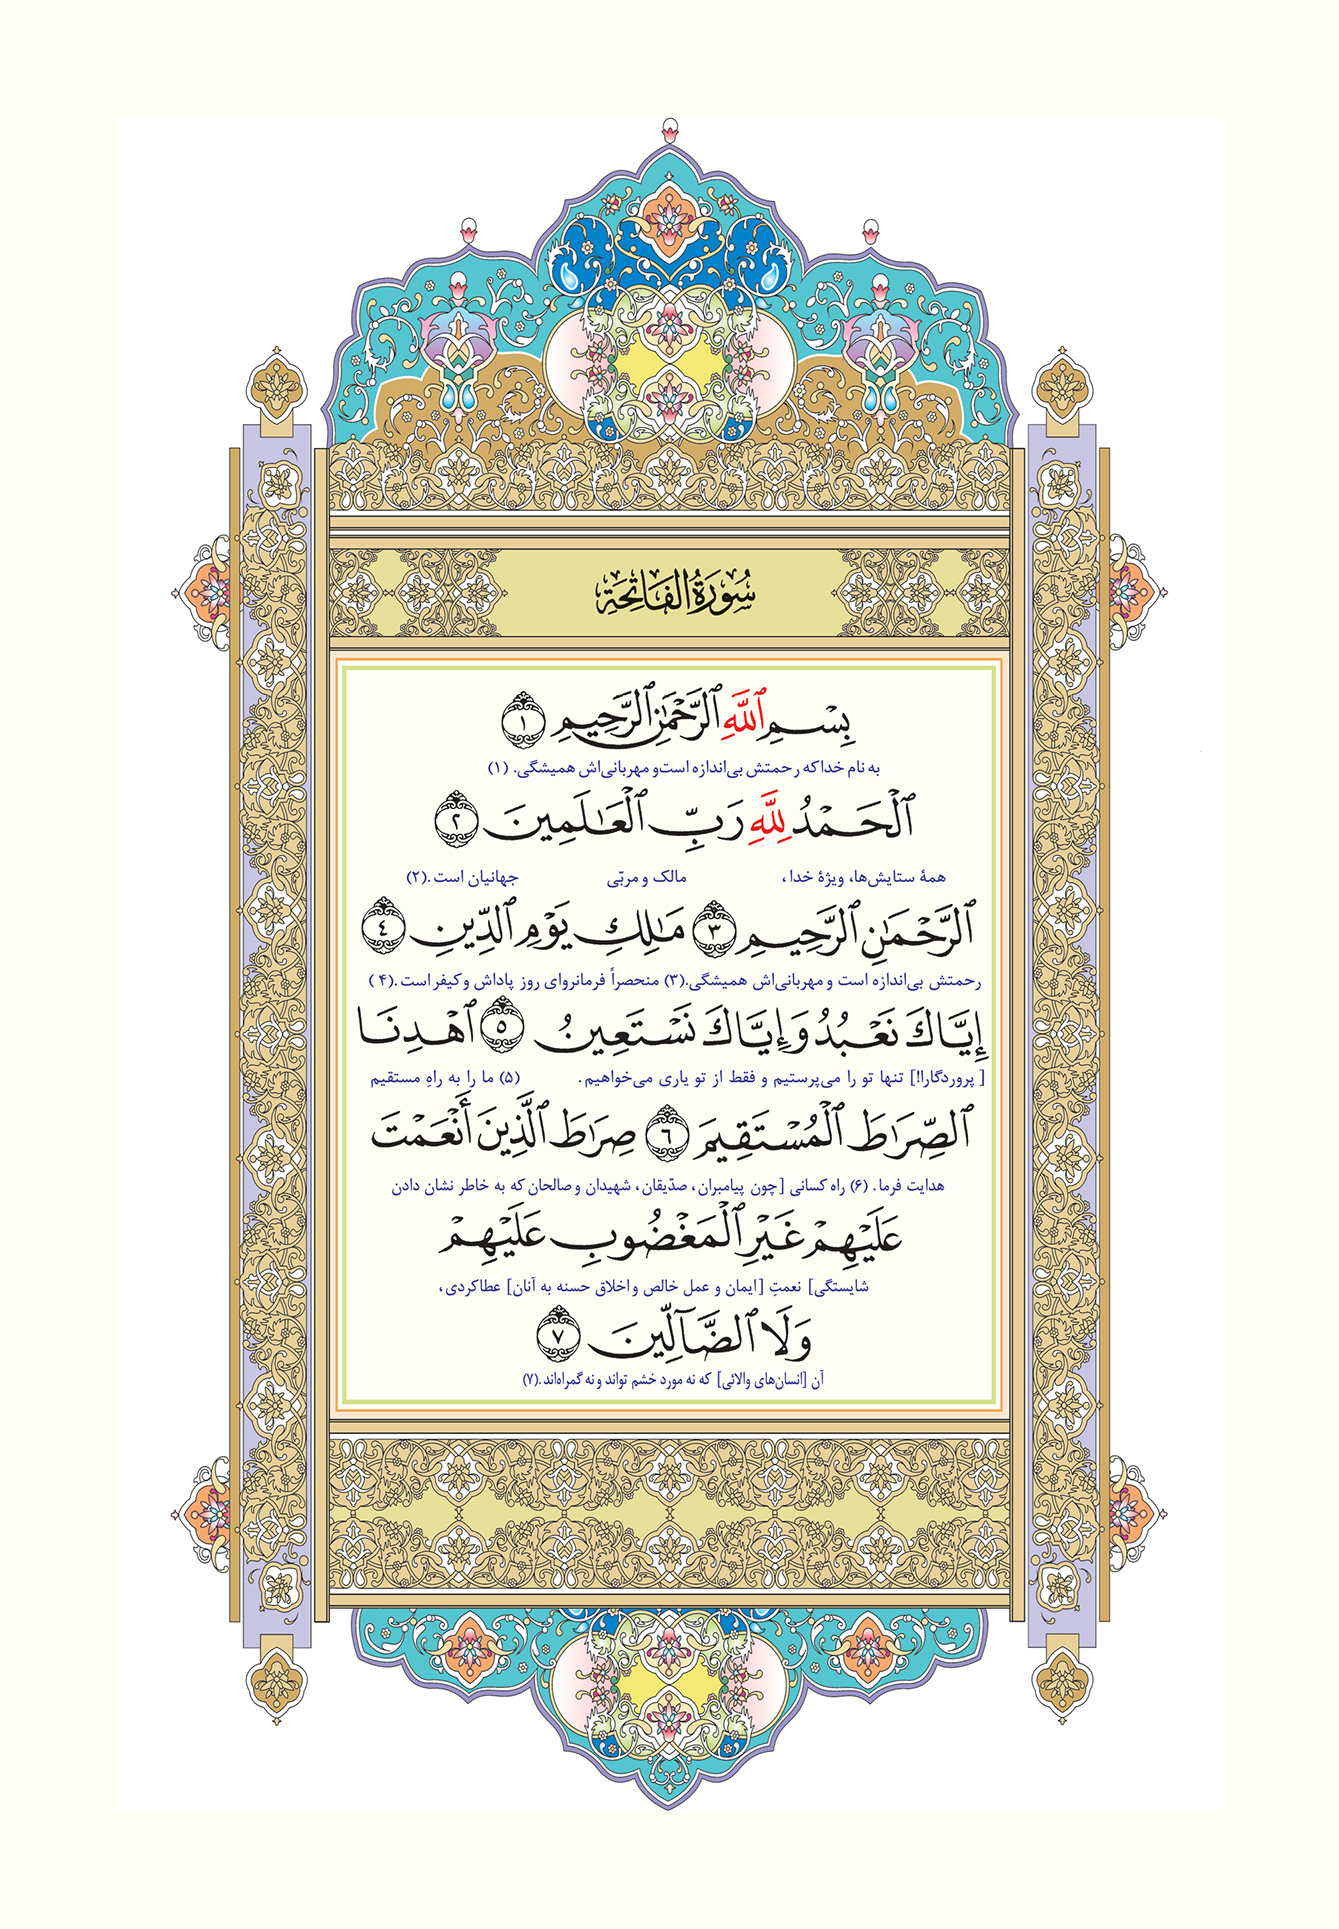 سُورَةُ الفَاتِحَةِ
بِسْمِ ٱللَّهِ ٱلرَّحْمَٰنِ ٱلرَّحِيمِ ١
به نام خدا که رحمتش بی‌اندازه است و مهربانی‌اش همیشگی. (۱)
ٱلْحَمْدُ لِلَّهِ رَبِّ ٱلْعَٰلَمِينَ ٢
همهٔ ستایش‌ها، ویژهٔ خدا، مالک و مربّی جهانیان است.(۲)
ٱلرَّحْمَٰنِ ٱلرَّحِيمِ ٣ مَٰلِكِ يَوْمِ ٱلدِّينِ ٤
رحمتش بی‌اندازه است و مهربانی‌اش همیشگی.(۳) منحصراً فرمانروای روز پاداش و کیفر است.(۴)
إِيَّاكَ نَعْبُدُ وَإِيَّاكَ نَسْتَعِينُ ٥ ٱهْدِنَا
[پروردگارا!] تنها تو را می‌پرستیم و فقط از تو یاری می‌خواهیم. (۵) ما را به راهِ مستقیم
ٱلصِّرَٰطَ ٱلْمُسْتَقِيمَ ٦ صِرَٰطَ ٱلَّذِينَ أَنْعَمْتَ
هدایت فرما. (۶) راه کسانی [چون پیامبران، صدّیقان، شهیدان و صالحان که به خاطر نشان دادن
عَلَيْهِمْ غَيْرِ ٱلْمَغْضُوبِ عَلَيْهِمْ
شایستگی] نعمتِ [ایمان و عمل خالص و اخلاق حسنه به آنان] عطا کردی،
وَلَا ٱلضَّآلِّينَ ٧
آن [انسان‌های والائی] که نه مورد خشم تواند و نه گمراه‌اند.(۷)